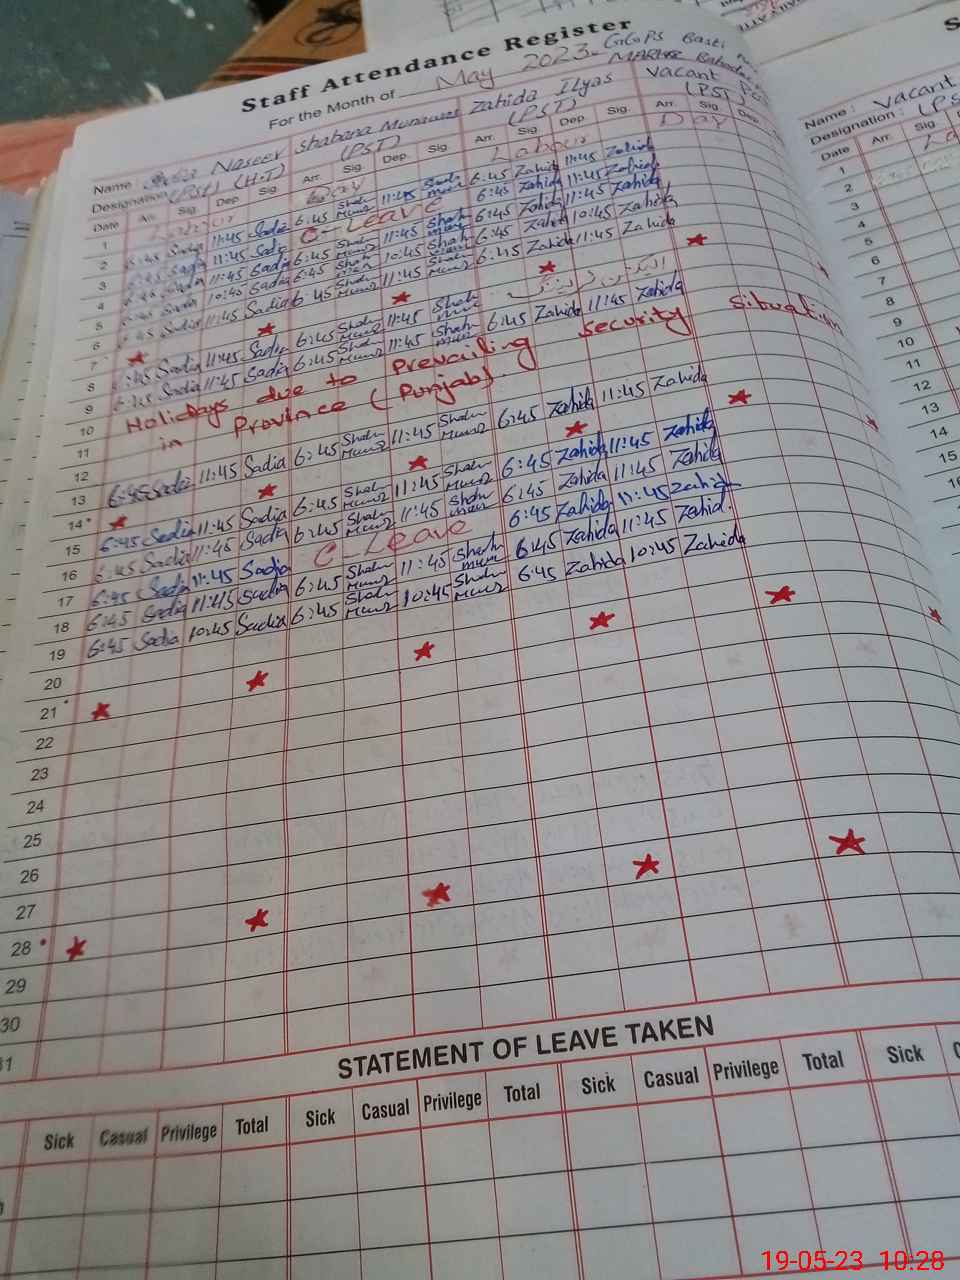 Staff Attendance Register
For the Month of May 2023 GGPS Basti
Name Sadia Naseer Shabana Munawar Zahida Ilyas Vacant
Designation (PST) (H.T) (PST) (PST) (PST)
Date Arr. Sig. Dep. Sig. Arr. Sig. Dep. Sig. Arr. Sig. Dep. Sig. Arr. Sig. Dep.
1 Labour Day Labour Day
2 6:45 Sadia 11:45 Sadia 6:45 Shah Munwr 11:45 Shah mun 6:45 Zahida 11:45 Zahida
3 6:45 Sadia 11:45 Sadia C-Leave 6:45 Zahida 11:45 Zahida
4 6:45 Sadia 11:45 Sadia 6:45 Shah 11:45 Shah 6:45 Zahida 11:45 Zahida
5 6:45 Sadia 10:45 Sadia 6:45 Shah 10:45 Shah 6:45 Zahida 10:45 Zahida
6 6:45 Sadia 11:45 Sadia 6:45 Shah 11:45 Shah 6:45 Zahida 11:45 Zahida
7
8 6:45 Sadia 11:45 Sadia 6:45 Shah 11:45 Shah
9 6:45 Sadia 11:45 Sadia 6:45 Shah 11:45 Shah 6:45 Zahida 11:45 Zahida
10 Holidays due to Prevailing security situation
11 in Province (Punjab).
12
13 6:45 Sadia 11:45 Sadia 6:45 Shah 11:45 Shah 6:45 Zahida 11:45 Zahida
14
15 6:45 Sadia 11:45 Sadia 6:45 Shah 11:45 Shah 6:45 Zahida 11:45 Zahida
16 6:45 Sadia 11:45 Sadia 6:45 Shah 11:45 Shah 6:45 Zahida 11:45 Zahida
17 6:45 Sadia 11:45 Sadia C-Leave 6:45 Zahida 11:45 Zahida
18 6:45 Sadia 11:45 Sadia 6:45 Shah 11:45 Shah 6:45 Zahida 11:45 Zahid
19 6:45 Sadia 10:45 Sadia 6:45 Shah 10:45 Shah 6:45 Zahida 10:45 Zahida
20
21
22
23
24
25
26
27
28
29
30
31
STATEMENT OF LEAVE TAKEN
Sick Casual Privilege Total Sick Casual Privilege Total Sick Casual Privilege Total Sick
Name: Vacant
Designation:
Date Arr. Sig.
1
2
3
4
5
6
7
8
9
10
11
12
13
14
15
19-05-23 10:28